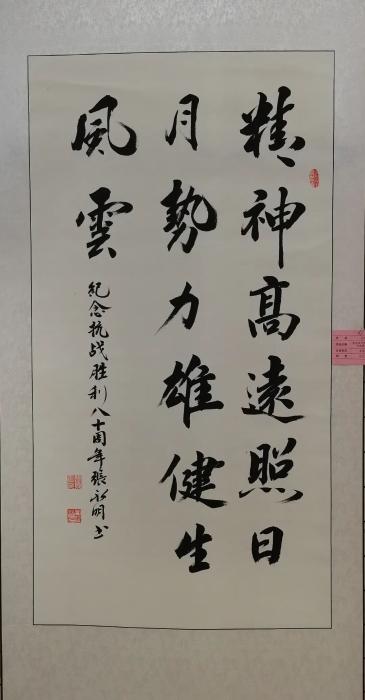 精神高遠照日
月勢力雄健生
風雲
紀念抗战胜利八十周年張永明书